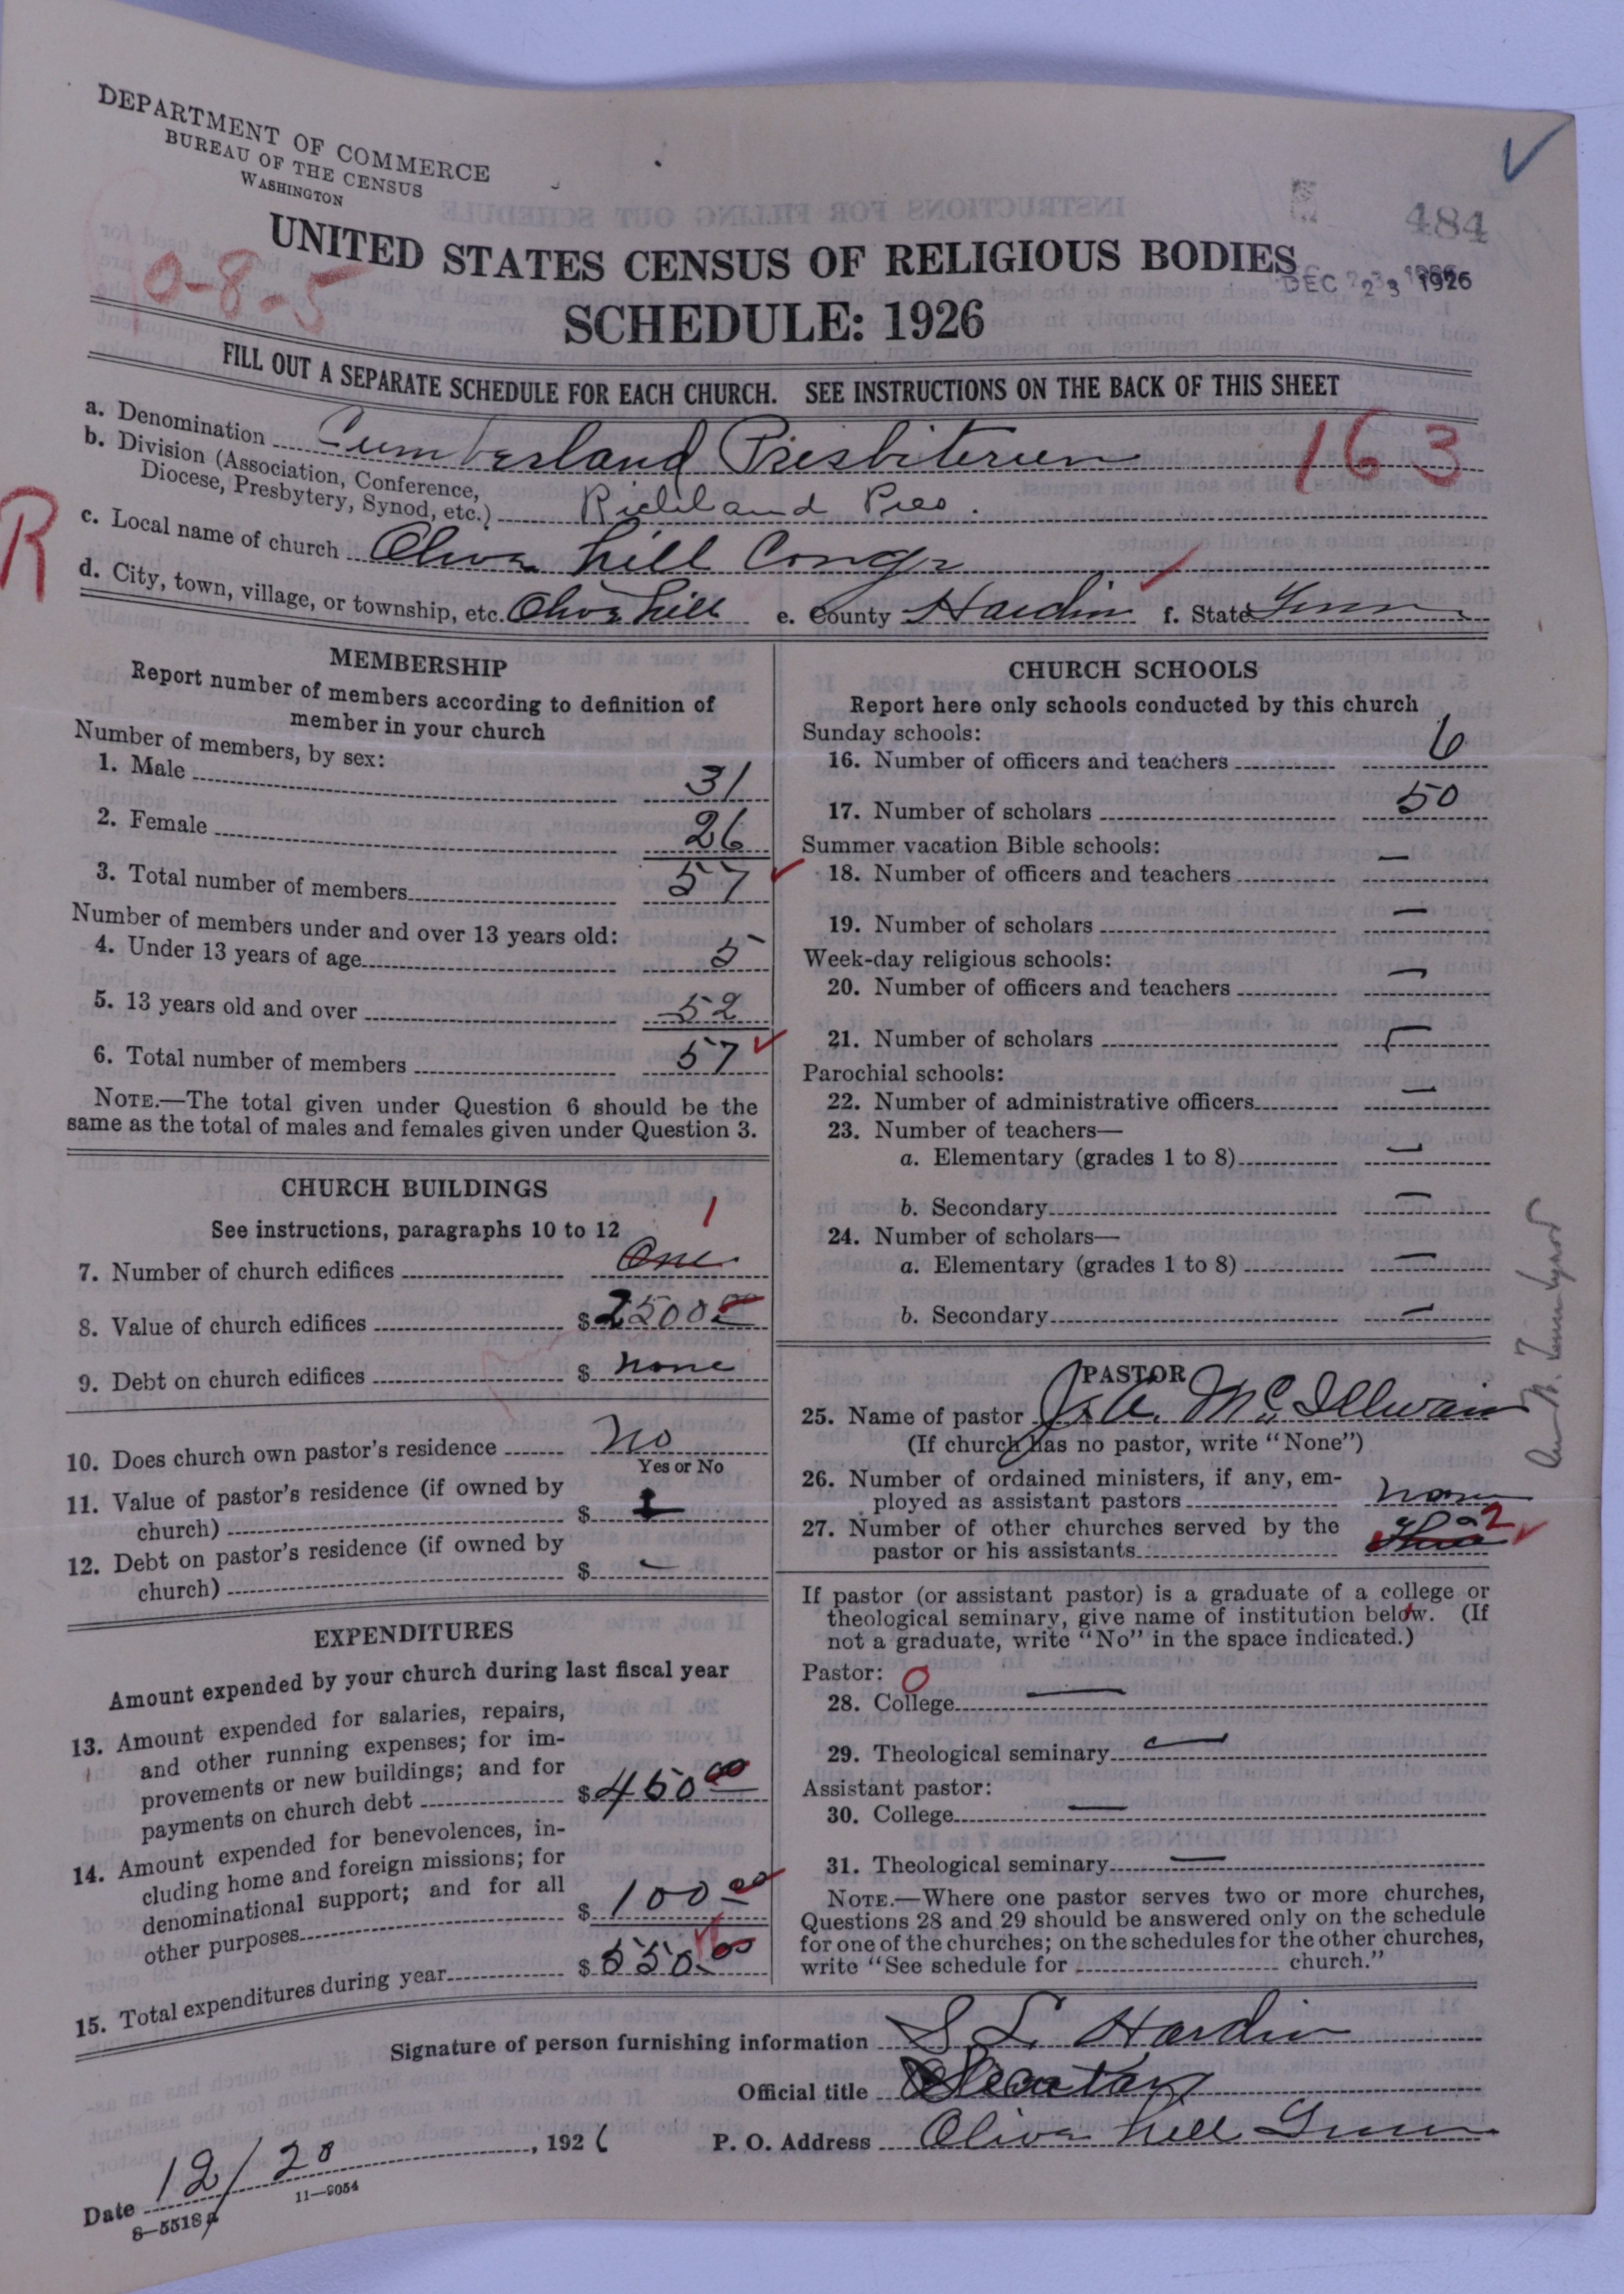 DEPARTMENT OF COMMERCE
BUREAU OF THE CENSUS
WASHINGTON
484
UNITED STATES CENSUS OF RELIGIOUS BODIES
DEC 23 1926
0-8-5
SCHEDULE: 1926
FILL OUT A SEPARATE SCHEDULE FOR EACH CHURCH. SEE INSTRUCTIONS ON THE BACK OF THIS SHEET
a. Denomination Cumberland Presbiterien 163
b. Division (Association, Conference,
Diocese, Presbytery, Synod, etc.) Richland Pres.
R
c. Local name of church Olive hill Congr
d. City, town, village, or township, etc. Olive hill e. County Hardin f. State Tenn
MEMBERSHIP
Report number of members according to definition of
member in your church
Number of members, by sex:
1. Male 31
2. Female 26
3. Total number of members 57
Number of members under and over 13 years old:
4. Under 13 years of age 5
5. 13 years old and over 52
6. Total number of members 57
NOTE.—The total given under Question 6 should be the
same as the total of males and females given under Question 3.
CHURCH BUILDINGS
See instructions, paragraphs 10 to 12
1
7. Number of church edifices One
8. Value of church edifices $2500 00
9. Debt on church edifices $ none
10. Does church own pastor's residence No
Yes or No
11. Value of pastor's residence (if owned by
church) $ —
12. Debt on pastor's residence (if owned by
church) $ —
EXPENDITURES
Amount expended by your church during last fiscal year
13. Amount expended for salaries, repairs,
and other running expenses; for im-
provements or new buildings; and for
payments on church debt $450 00
14. Amount expended for benevolences, in-
cluding home and foreign missions; for
denominational support; and for all
other purposes $ 100 00
15. Total expenditures during year $ 550 00
CHURCH SCHOOLS
Report here only schools conducted by this church
Sunday schools:
16. Number of officers and teachers 6
17. Number of scholars 50
Summer vacation Bible schools:
18. Number of officers and teachers —
19. Number of scholars —
Week-day religious schools:
20. Number of officers and teachers —
21. Number of scholars —
Parochial schools:
22. Number of administrative officers —
23. Number of teachers—
a. Elementary (grades 1 to 8) —
b. Secondary —
24. Number of scholars—
a. Elementary (grades 1 to 8) —
b. Secondary —
PASTOR
25. Name of pastor J. A. McIllwain
(If church has no pastor, write "None")
26. Number of ordained ministers, if any, em-
ployed as assistant pastors none
27. Number of other churches served by the
pastor or his assistants 2
If pastor (or assistant pastor) is a graduate of a college or
theological seminary, give name of institution below. (If
not a graduate, write "No" in the space indicated.)
Pastor: 0
28. College —
29. Theological seminary —
Assistant pastor:
30. College —
31. Theological seminary —
NOTE.—Where one pastor serves two or more churches,
Questions 28 and 29 should be answered only on the schedule
for one of the churches; on the schedules for the other churches,
write "See schedule for church."
Signature of person furnishing information S. L. Hardin
Official title Secratary
Date 12/20, 1926 P. O. Address Olive hill Tenn
11—9054
8—5518a